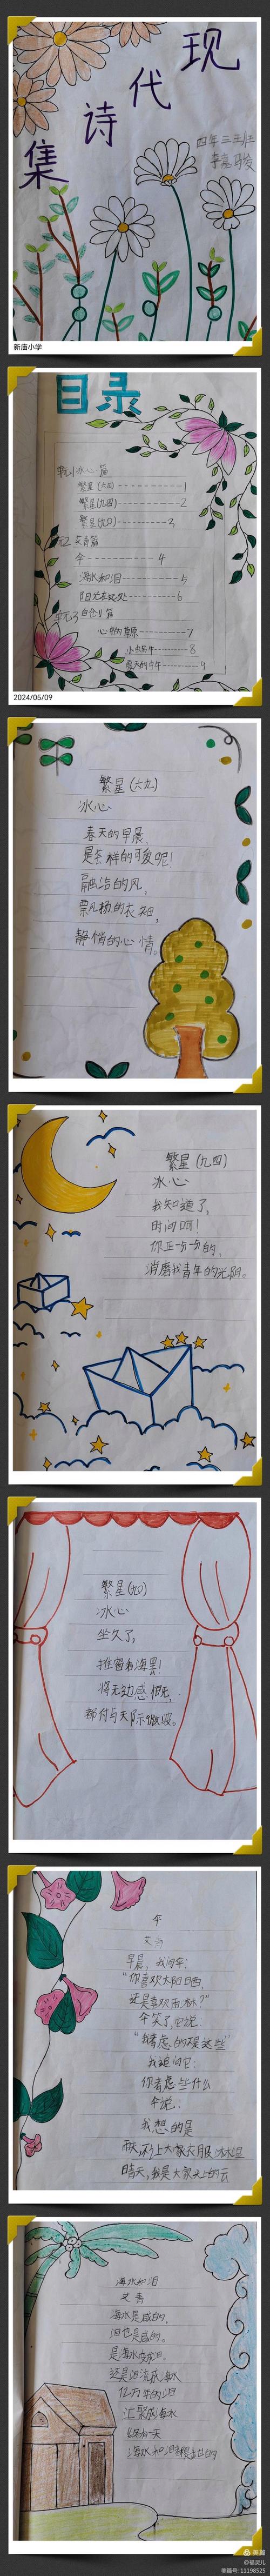 现代诗集
四年三班
新庙小学
目录
单元1冰心篇
繁星(六九)------1
繁星(九四)------2
繁星(九〇)------3
艾青篇
伞------4
海水和泪------5
阳光在
------6
单元3
篇
------7
小
------8
------9
2024/05/09
繁星(六九)
冰心
春天的早晨,
是怎样的可爱呢!
融洽的风,
飘扬的衣袖,
静悄的心情。
繁星(九四)
冰心
我知道了,
时间呵!
你正一分一分的,
消磨我青年的光阴。
繁星(九〇)
冰心
坐久了,
推窗看海罢!
将无边感慨,
都付与天际微波。
伞
艾青
早晨,我问伞:
“你喜欢太阳晒
还是喜欢雨淋?”
伞笑了,它说:
“我考虑的不是这些”
我追问它:
你考虑些什么
伞说:
我想的是
雨天,不让大家衣服
晴天,我是大家头上的云
海水和泪
艾青
海水是咸的,
泪也是咸的。
是海水变成泪,
还是泪流成海水
亿万年的泪
汇聚成海水
终有一天
海水和泪都是甜的
美篇
@蕴灵儿
美篇号: 11198525